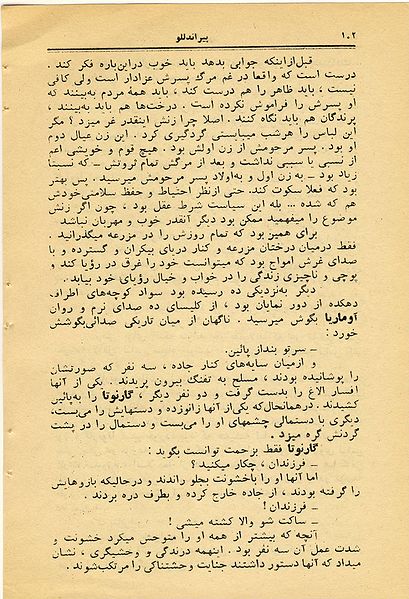 ۱۰۲
پیراندللو
قبل ازاینکه جوابی بدهد باید خوب دراین‌باره فکر کند .
درست است که واقعا در غم مرگ پسرش عزادار است ولی کافی
نیست ، باید ظاهر را هم درست کند ، باید همهٔ مردم به‌بینند که
او پسرش را فراموش نکرده است . درخت‌ها هم باید به‌بینند ،
پرندگان هم باید نگاه کنند. اصلا چرا زنش اینقدر غر میزد ؟ مگر
این لباس را هرشب میبایستی گردگیری کرد . این زن عیال دوم
او بود . پسر مرحومش از زن اولش بود . هیچ قوم و خویشی اعم
از نسبی یا سببی نداشت و بعد از مرگش تمام ثروتش ــ که نسبتا
زیاد بود ــ به زن اول و به‌اولاد پسر مرحومش میرسید . پس بهتر
بود که فعلا سکوت کند. حتی ازنظر احتیاط و حفظ سلامتی‌خودش
هم که شده ... بله این سیاست شرط عقل بود ، چون اگر زنش
موضوع را میفهمید ممکن بود دیگر آنقدر خوب و مهربان نباشد .
برای همین بود که تمام روزش را در مزرعه میگذرانید .
فقط درمیان درختان مزرعه و کنار دریای بیکران و گسترده و با
صدای غرش امواج بود که میتوانست خود را غرق در رؤیا کند و
پوچی و ناچیزی زندگی را در خواب و خیال رؤیای خود بیابد .
دیگر به‌نزدیکی ده رسیده بود سواد کوچه‌های اطراف
دهکده از دور نمایان بود ، از کلیسای ده صدای نرم و روان
آوماریا بگوش میرسید . ناگهان از میان تاریکی صدائی‌بگوشش
خورد :
ــ سرتو بنداز پائین.
و ازمیان سایه‌های کنار جاده ، سه نفر که صورتشان
را پوشانیده بودند ، مسلح به تفنگ بیرون پریدند . یکی از آنها
افسار الاغ را بدست گرفت و دو نفر دیگر ، گارنوتا را به‌پائین
کشیدند . درهمانحال‌که یکی‌از آنها زانوزده و دستهایش را می‌بست،
دیگری با دستمالی چشمهای او را می‌بست و دستمال را در پشت
گردنش گره میزد .
گارنوتا فقط بزحمت توانست بگوید :
ــ فرزندان ، چکار میکنید ؟
اما آنها او را باخشونت بجلو راندند و درحالیکه بازوهایش
را گرفته بودند ، از جاده خارج کرده و بطرف دره بردند .
ــ فرزندان !
ــ ساکت شو والا کشته میشی !
آنچه که بیشتر از همه او را متوحش میکرد خشونت و
شدت عمل آن سه نفر بود . اینهمه درندگی و وحشیگری ، نشان
میداد که آنها دستور داشتند جنایت وحشتناکی را مرتکب‌شوند .